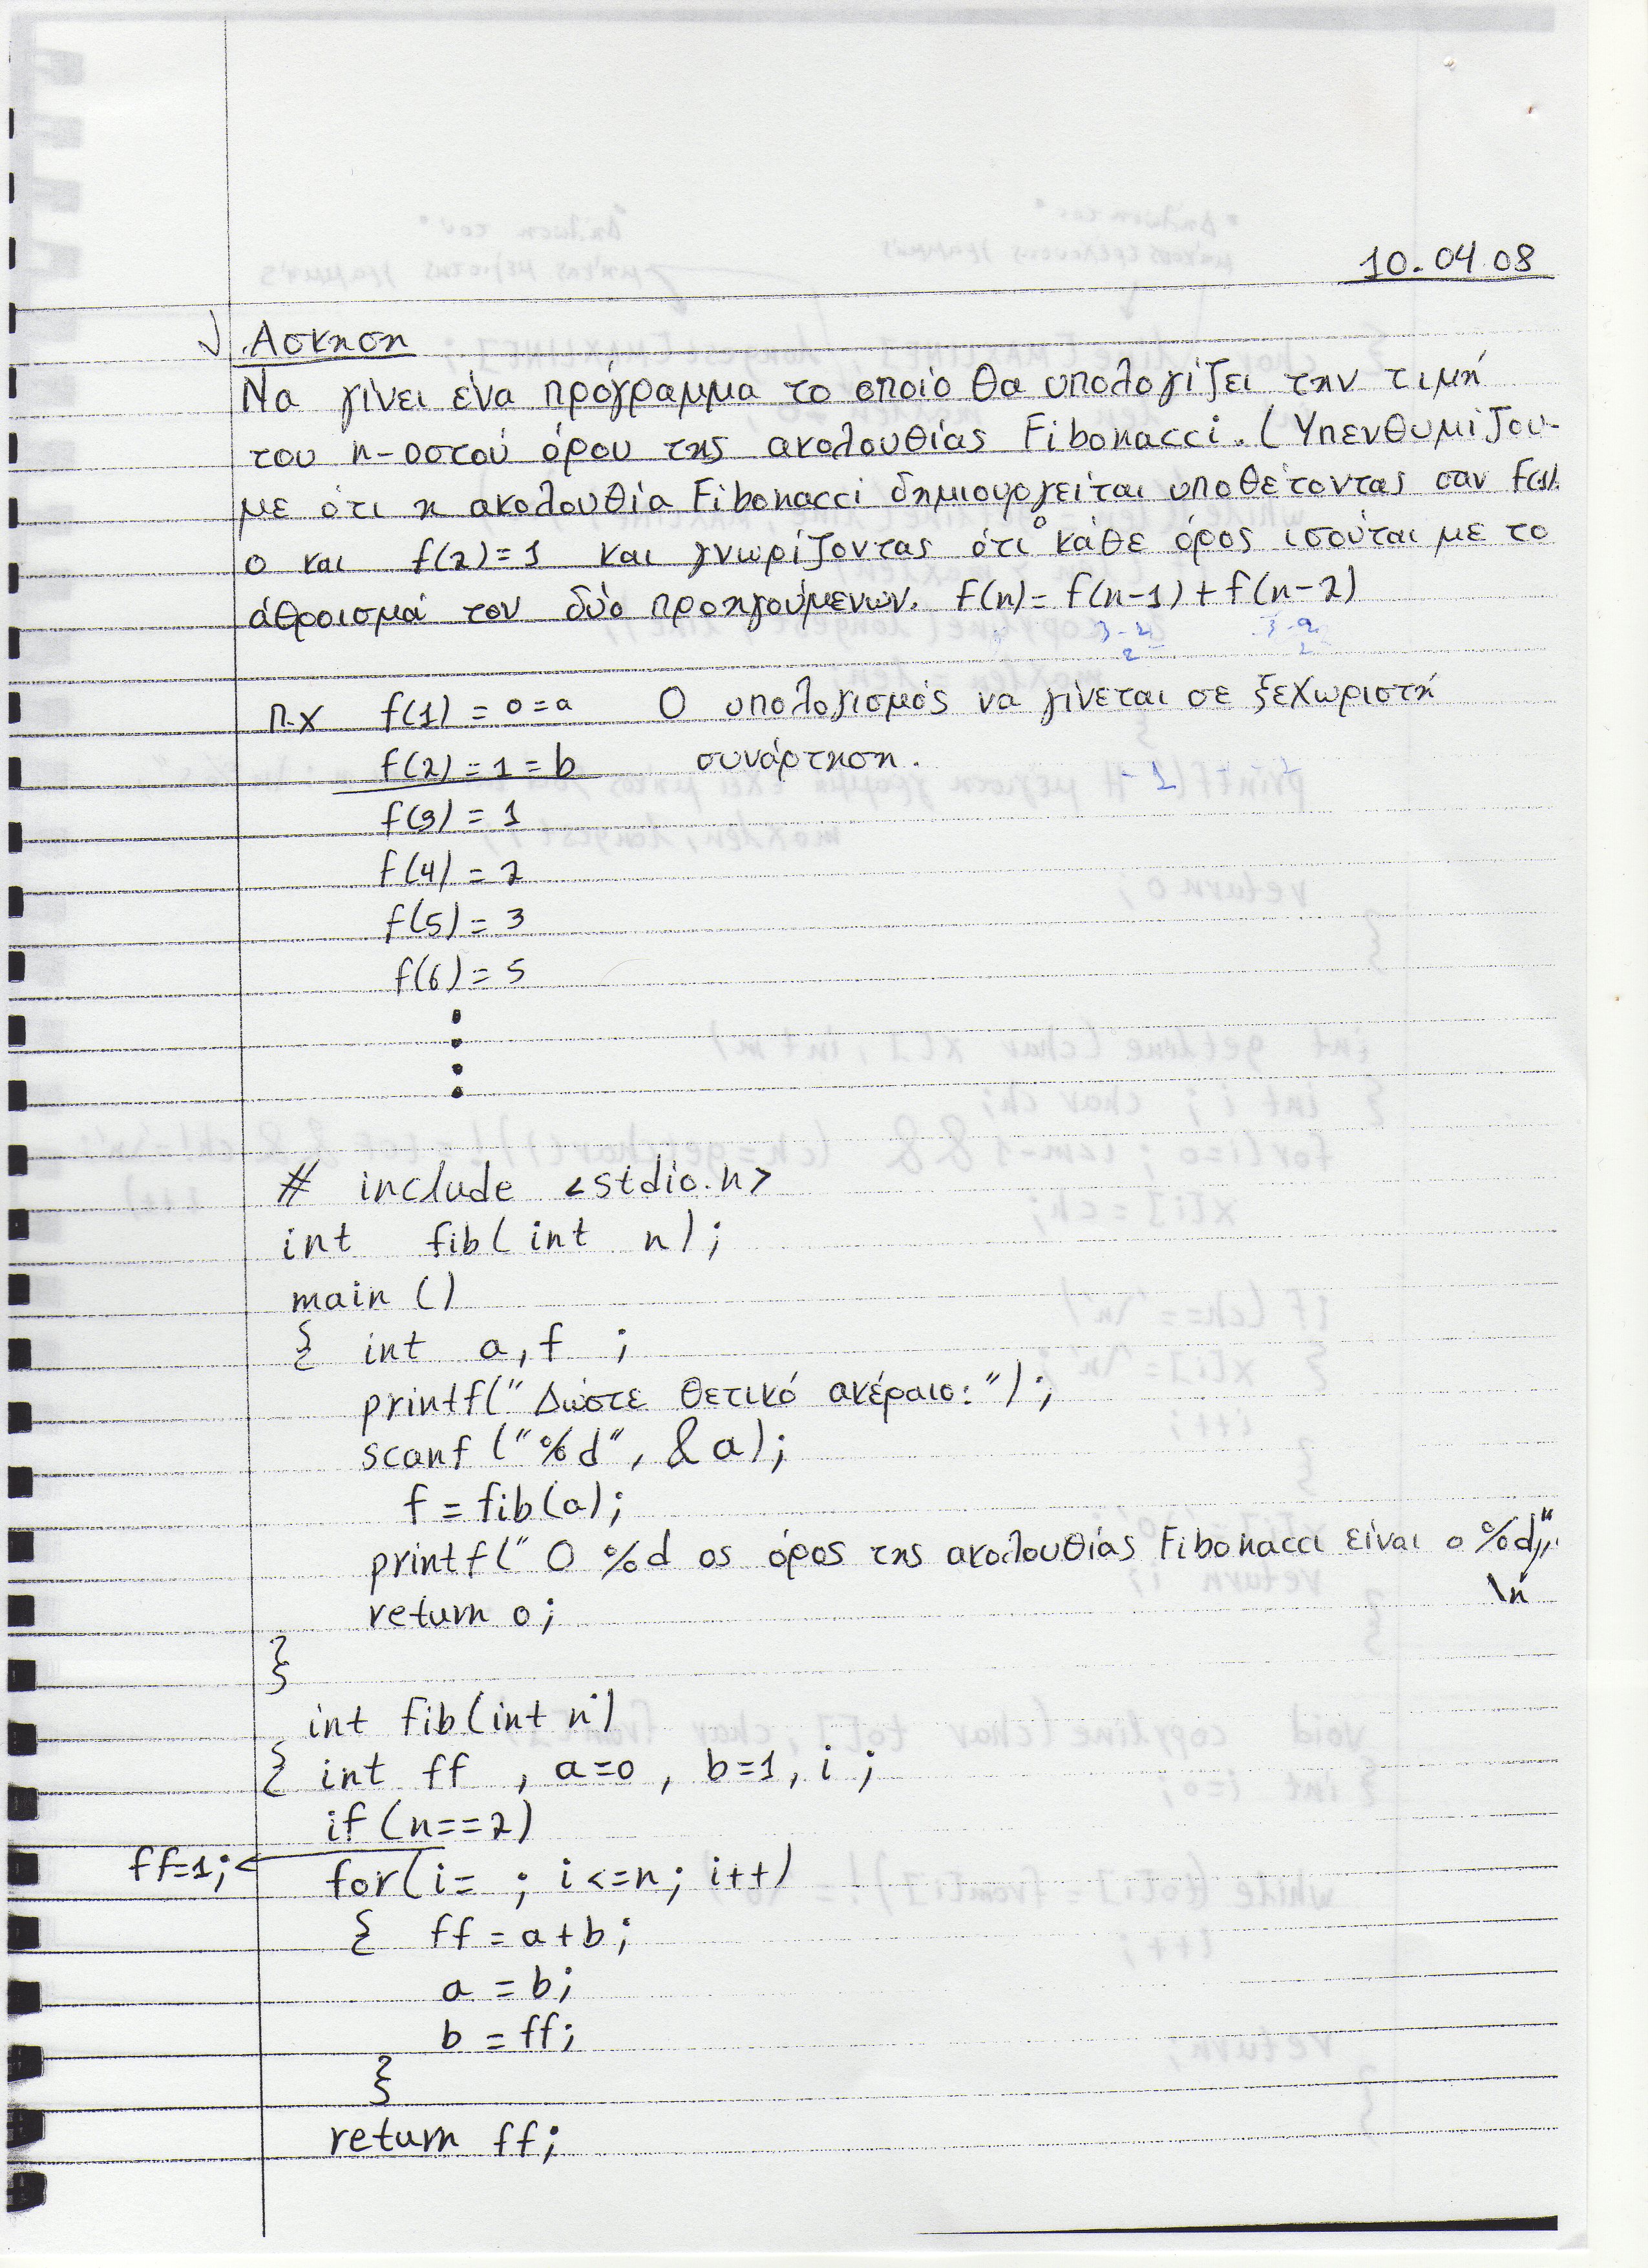 10.04 08
Ασκηση
Να γίνει ένα πρόγραμμα το οποίο θα υπολογίζει την τιμή
του n-οστού όρου της ακολουθίας Fibonacci. (Υπενθυμίζου-
με ότι η ακολουθία Fibonacci δημιουργείται υποθέτοντας σαν f(1)
0 και f(2)=1 και γνωρίζοντας ότι κάθε όρος ισούται με το
άθροισμά τον δύο προηγούμενων. f(n)= f(n-1)+f(n-2)
π.χ f(1) = 0=a Ο υπολογισμός να γίνεται σε ξεχωριστή
f(2) = 1 = b συνάρτηση.
f(3) = 1
f(4) = 2
f(5) = 3
f(6) = 5
# include <stdio.h>
int fib( int n);
main ()
{ int a,f ;
printf(" Δώστε θετικό ακέραιο:");
scanf ("%d", &a);
f = fib(a);
printf(" Ο %d ος όρος της ακολουθίας Fibonacci είναι ο %d"
\n
return 0;
}
int fib(int n)
{ int ff , a=0 , b=1, i ;
if (n==2)
ff=1;
for(i= ; i<=n; i++)
{ ff = a+b;
a = b;
b = ff;
}
return ff;